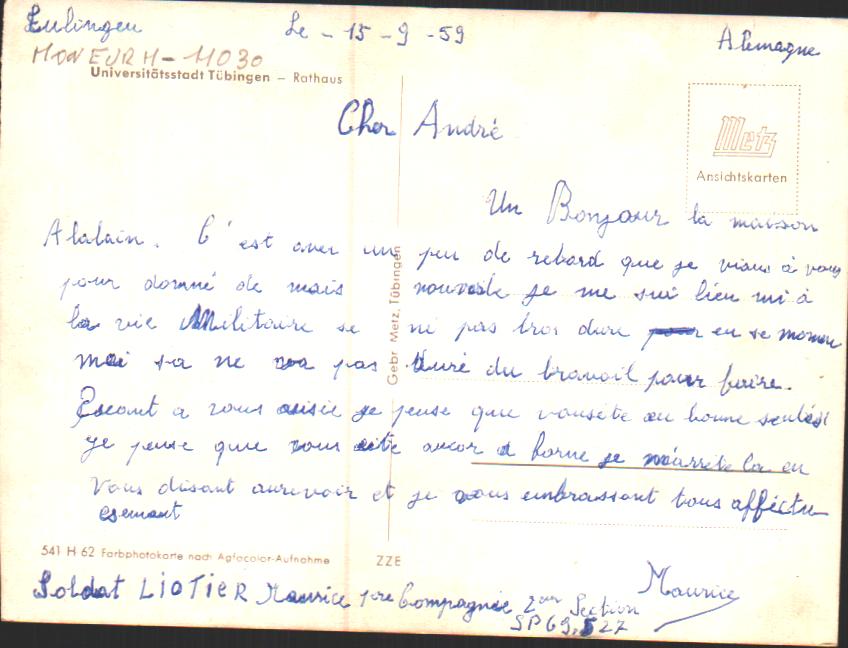 Le - 15 - 9 - 59
Alemagne
11030
Universitätsstadt Tübingen – Rathaus
Cher André
Metz
Ansichtskarten
Un Bonjour la maison
Alalain. C'est aver un peu de rebord que je viaus à vous
pour donné de mais nouvele je me sui bien mi à
la vie Militaire se ni pas tros dure en se momen
moi sa ne va pas duré du travail pour faire.
a vous je pense que vousête au bonne
je pense que vous ancor a je m'arrête la en
vous disant aurevoir et je vous embrassant tous afféctu
esemant
Gebr. Metz, Tübingen
541 H 62 Farbphotokarte nach Agfacolor-Aufnahme
ZZE
Maurice
Soldat LIOTIER Maurice 1ere Compagnie 2em Section
SP 69.527